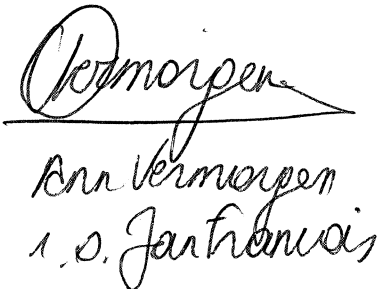 Vermorgen
Ann Vermorgen
i.o. Jan Francois